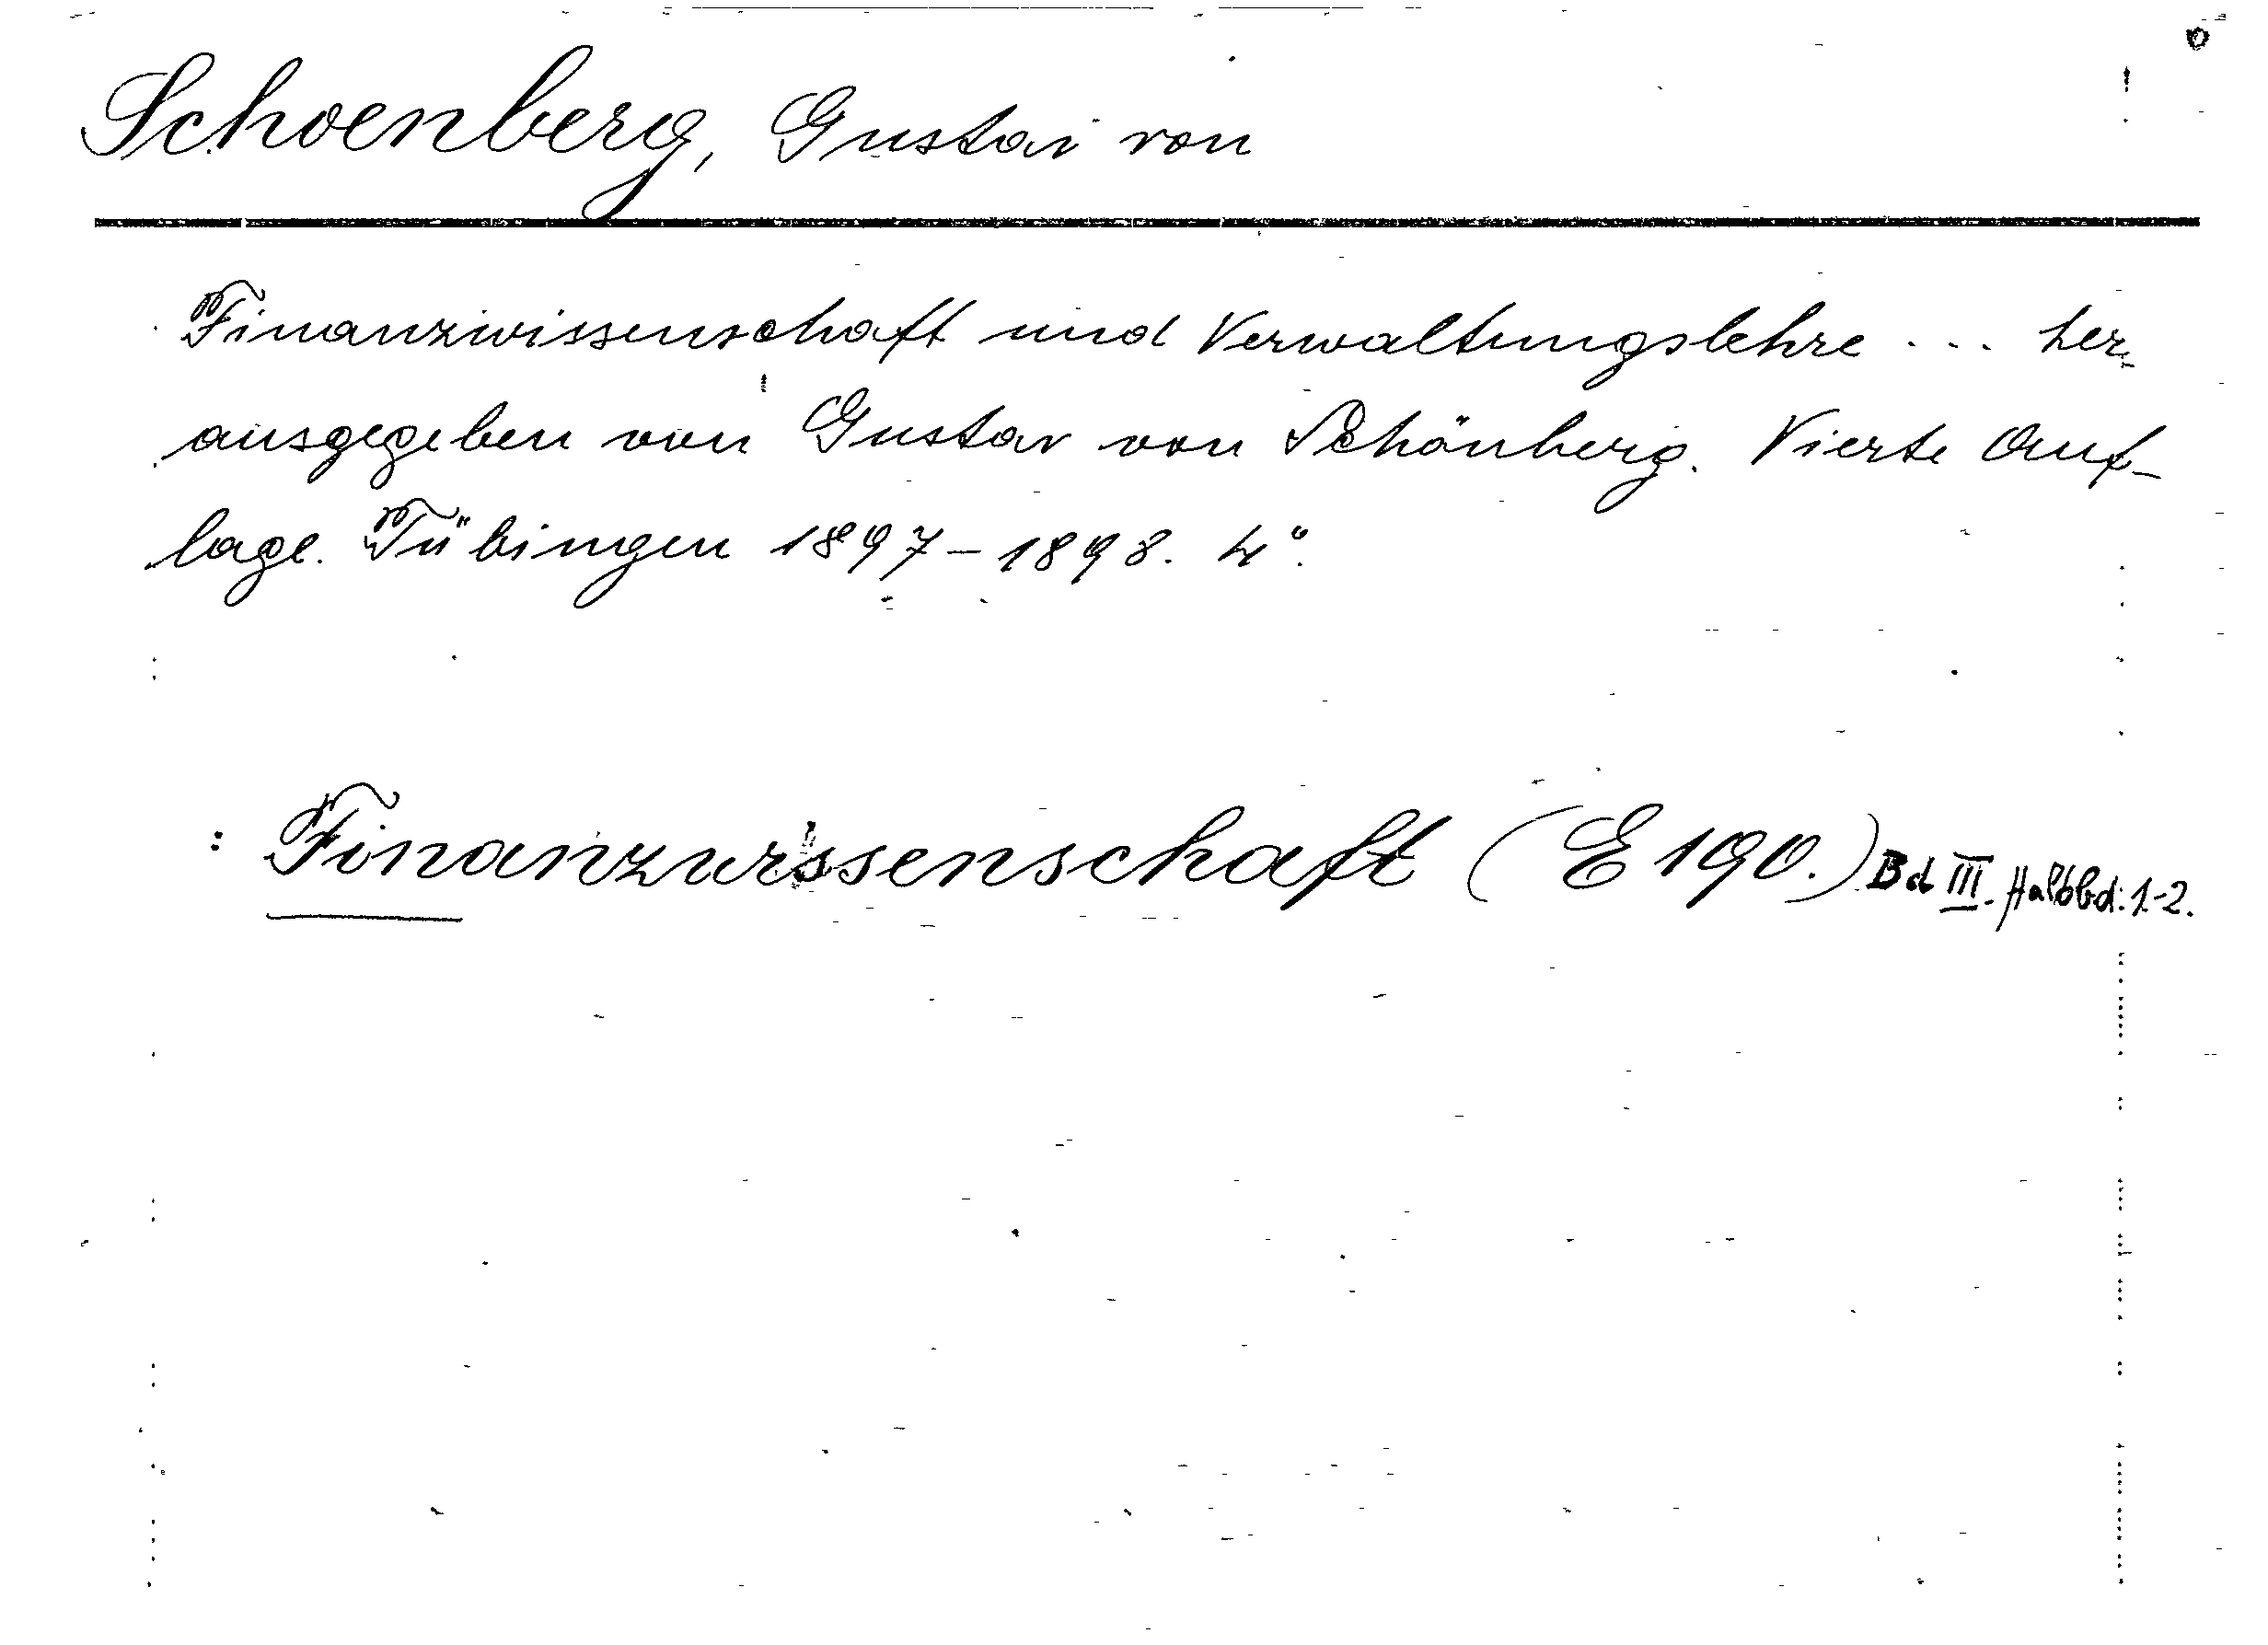 Schoenberg, Gustav von
Finanzwissenschaft und Verwaltungslehre ... her-
ausgegeben von Gustav von Schönberg. Vierte Auf-
lage. Tübingen 1897-1898. 4°.
: Finanzwissenschaft (E 190.) Bd III. Halbbd: 1-2.